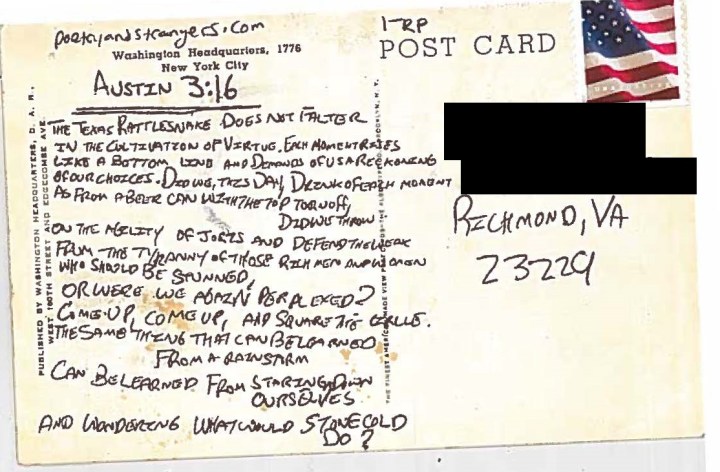 poetryandstrangers.com
Washington Headquarters, 1776
New York City
AUSTIN 3:16
THE TEXAS RATTLESNAKE DOES NOT FALTER
IN THE CULTIVATION OF VIRTUE. EACH MOMENT RISES
LIKE A BOTTOM LINE AND DEMANDS OF US A RECKONING
OF OUR CHOICES. DID WE, THIS DAY, DRINK OF EACH MOMENT
AS FROM A BEER CAN WITH THE TOP TORN OFF,
DID WE THROW
ON THE OF JORTS AND DEFEND THE WEAK
FROM THE TYRANNY OF THOSE RICH MEN AND WOMEN
WHO SHOULD BE STUNNED,
OR WERE WE AGAIN PERPLEXED?
COME UP, COME UP, AND SQUARE THE CIRCLE.
THE SAME THING THAT CAN BE LEARNED
FROM A RAINSTORM
CAN BE LEARNED FROM STARING DOWN
OURSELVES
AND WONDERING WHAT WOULD STONE COLD
DO?
PUBLISHED BY WASHINGTON HEADQUARTERS, D. A. R.,
WEST 160TH STREET AND EDGECOMBE AVE.
THE FINEST AMERICAN MADE VIEW POST CARDS—THE ALBERTYPE CO., BROOKLYN, N. Y.
POST CARD
RICHMOND, VA
23229